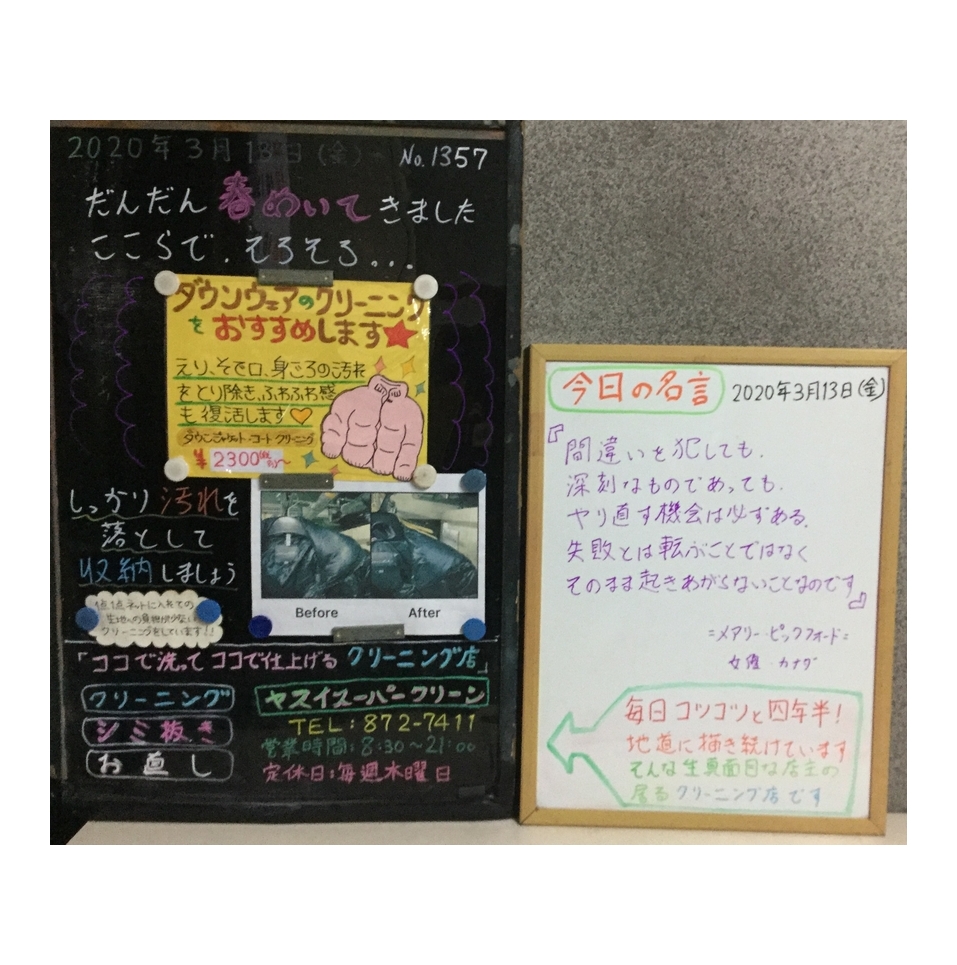 2020年3月13日(金) No.1357
だんだん春めいてきました
ここらで、そろそろ...
ダウンウェアのクリーニング
をおすすめします★
えり、そで口、身ごろの汚れ
をとり除き、ふわふわ感
も復活します♡
ダウンジャケット・コート クリーニング
¥2300~
しっかり汚れを
落として
収納しましょう
Before After
生地への負担が少ない
クリーニングをしています!!
「ココで洗ってココで仕上げる クリーニング店」
クリーニング
シミ抜き
お直し
ヤスイスーパークリーン
TEL:872-7411
営業時間:8:30~21:00
定休日:毎週木曜日
今日の名言 2020年3月13日(金)
『間違いを犯しても、
深刻なものであっても、
やり直す機会は必ずある。
失敗とは転ぶことではなく
そのまま起きあがらないことなのです』
=メアリー・ピックフォード=
女優・カナダ
毎日コツコツと四年半!
地道に描き続けています
そんな生真面目な店主の
居るクリーニング店です